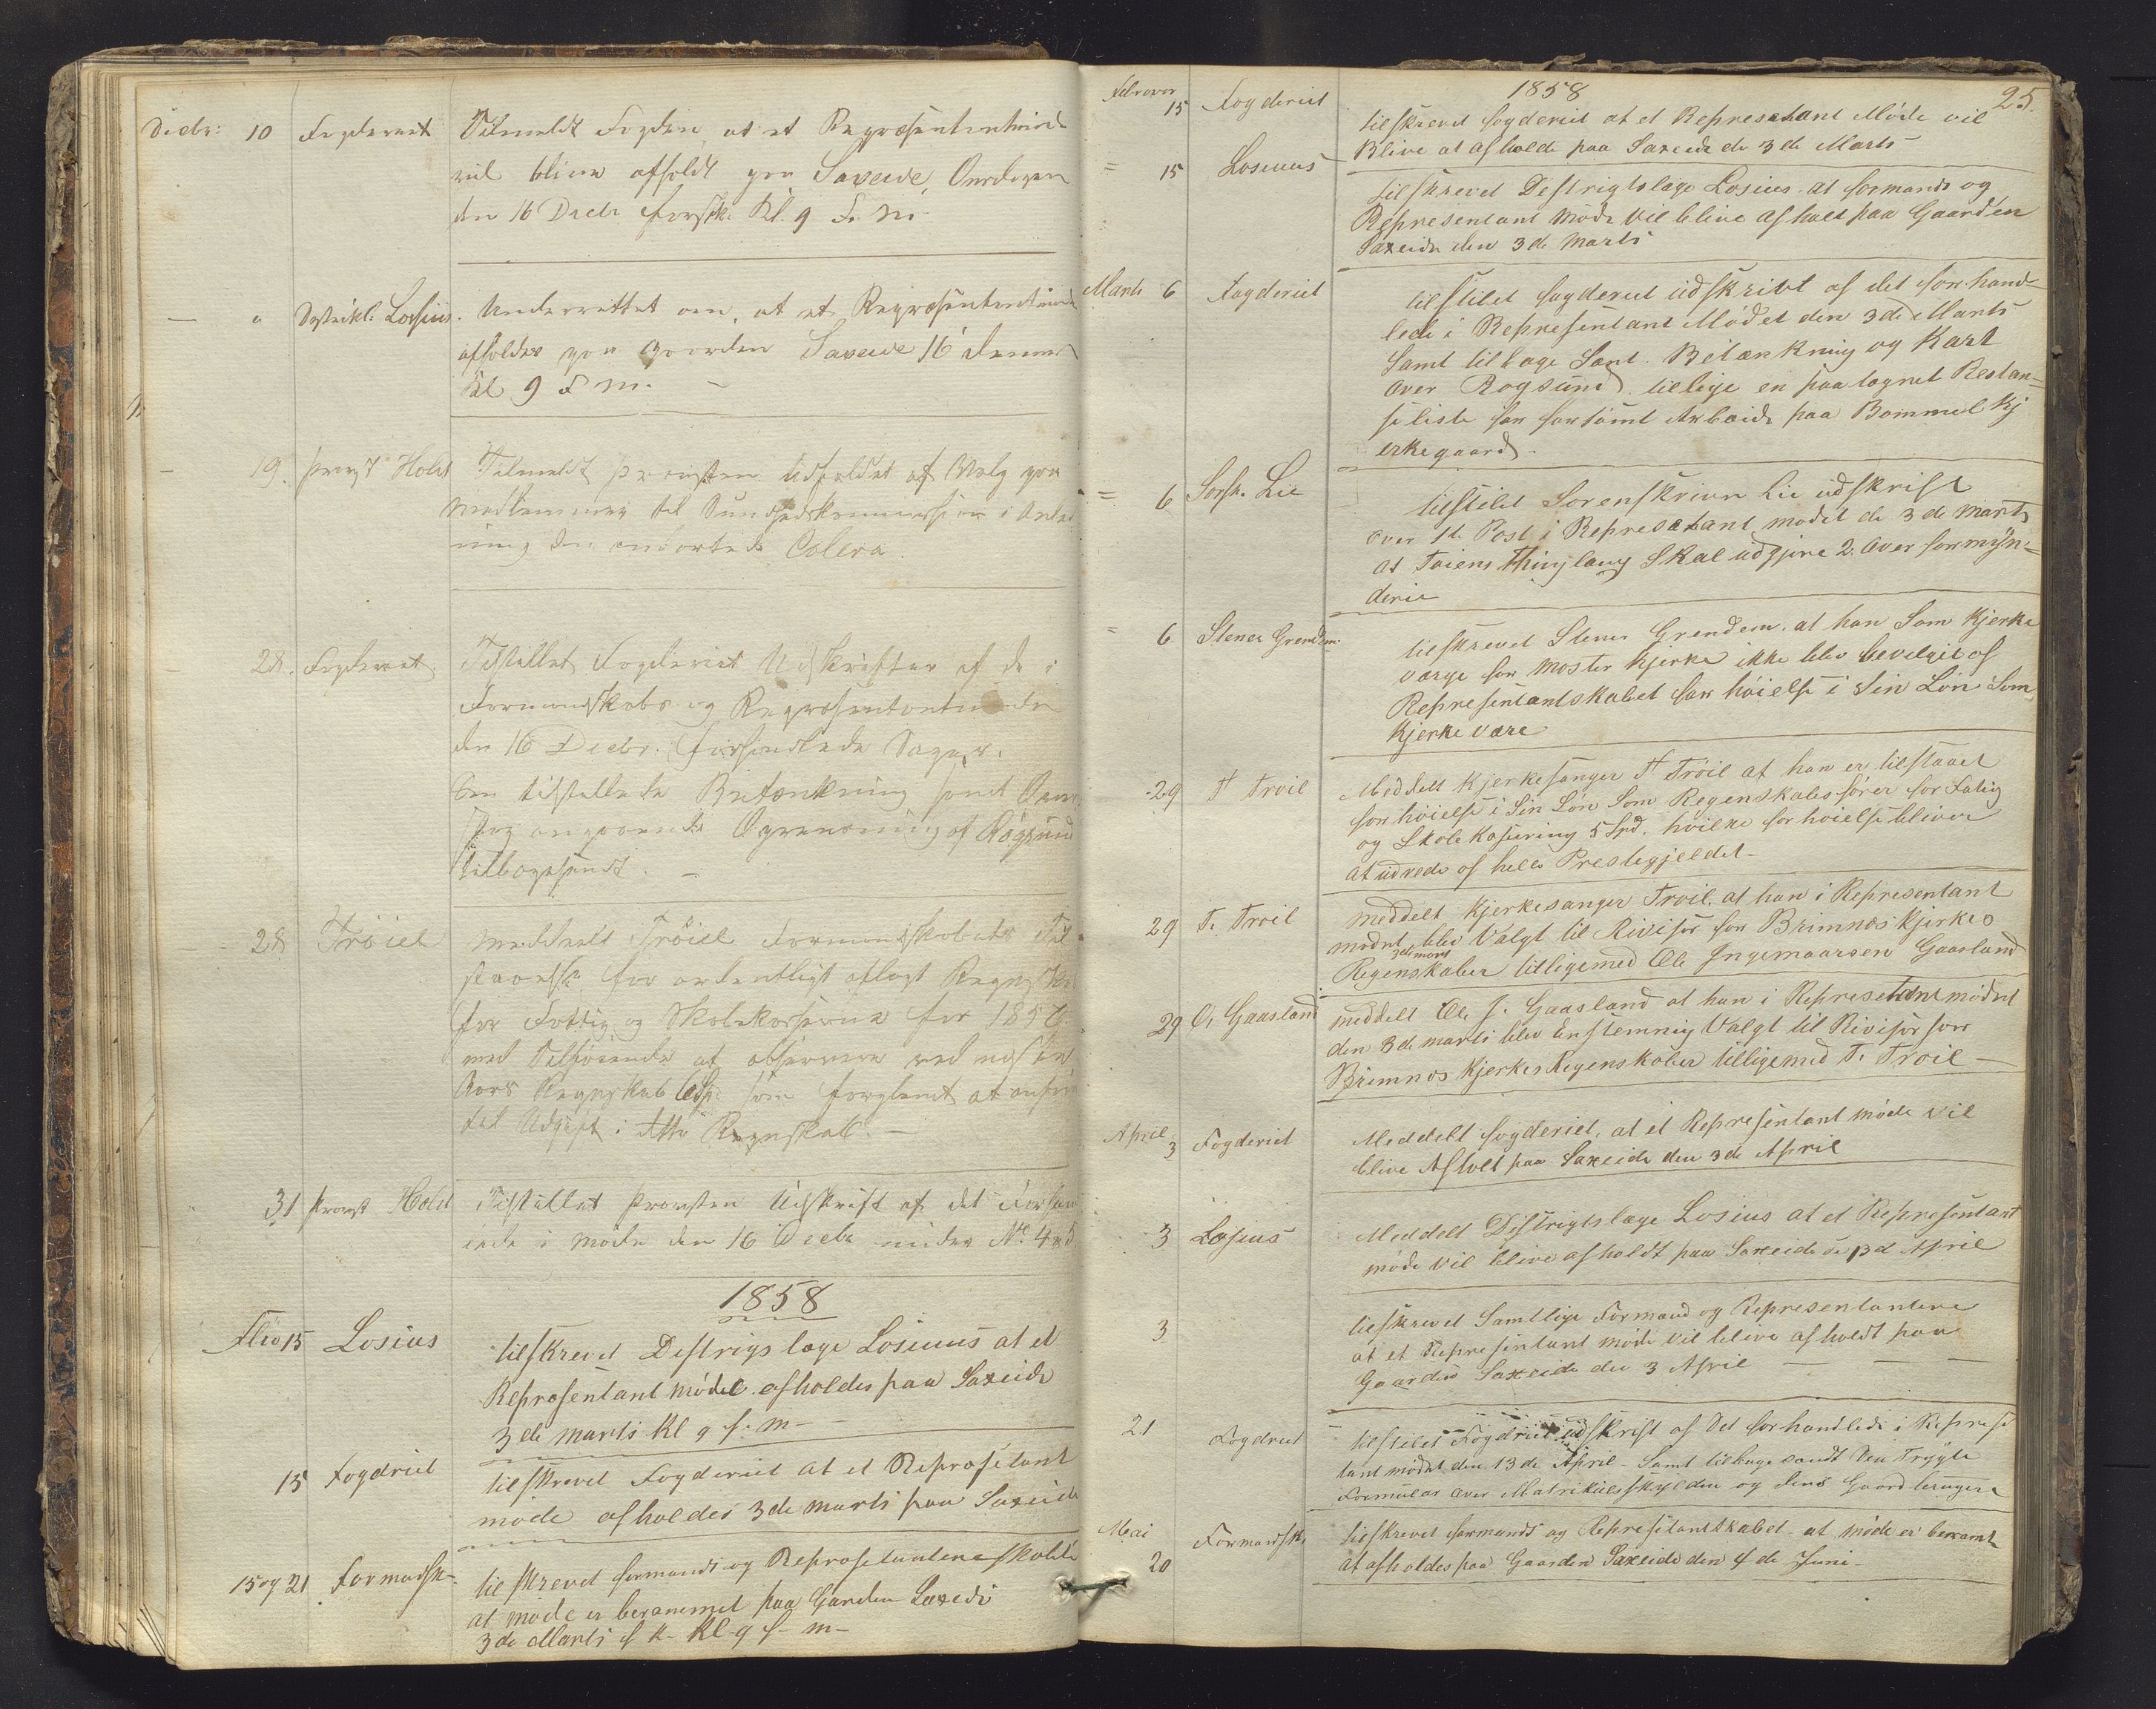 Decbr: 10 Fogderiet Tilmeldt Fogden, at et Repræsentantmøde
vil blive afholdt paa Saxeide, Onsdagen
den 16 Decbr førstk. Kl. 9 F. M.
— " Distriktl. Lossius. Underrettet om, at et Repræsentantmøde
afholdes paa Gaarden Saxeide 16 dennes
Kl 9 F M. —
19. Provst Holst Tilmeldt Provsten Udfaldet af Valg paa
Medlemmer til Sundhedskommission i Anled
ning den Colera.
28. Fogderiet. Tilstillet Fogderiet Udskrifter af de i
Formandskabs og Repræsentantmøde
den 16 Decbr. forhandlede Sager.
Den tilstillede Betænkning samt
angaaende Oprensning af Røgsund
tilbagesendt. —
28 Trøiel Meddeelt Trøiel Formandskabets Til
staaelse for ordentligt aflagt Regnskab
for Fattig og Skolekasserne for 1856
med Tilføiende at observere ved næste
Aars Regnskab som forglemt at anføre
til Udgift i dette Regnskab. —
31 Provst Holst Tilstillet Provsten Udskrift af det Forhand
lede i Møde den 16 Decbr under No. 4 & 5
1858
15 Losius tilskrevet Destrigs læge Losiuus at et
Repræsentant mødet afholdes paa Saxeide
3de marts Kl 9 f. m —
15 Fogdriet tilskrevet Fogderiet at et Represetant
møde afholdes 3de marts paa Saxeide
15 og 21 Formadsk. til skrevet formands og Represetantere skabte
at møde er berammet paa Garden Saxede
3de Marts f k - Kl 9 f - m -
25.
1858
Februar 15 Fogderiet tilskrevet fogderiet at et Represetant Møde vil
Blive at afholde paa Saxeide de 3de Marts
= 15 Losiuus tilskrevet Destrigtslæge Losius at formands og
Representant møde vil blive afholt paa Gaarden
Saxeide den 3de Marts
Marts 6 Fogderiet tilstilet fogderiet udskrivt af det forhand=
lede i Representant Mødet den 3de Marts
Samt tilbage Sent Betænkning og Kart
over Røgsund tillige en paategnet Restan=
seliste for forsømt Arbeide paa Bømmel Kj
erkegaard.
= 6 Sorsk. Lie tilstilet Sorenskriver Lie udskrift
over 1te Post i Represetant mødet de 3de marts
at Føiens Thinglaug Skal udgjøre 2 Over formyn=
derie
= 6 Stener Grendem. tilskrevet Stener Grendem. at han Som Kjerke
værge for Moster Kjerke ikke blev bevelget af
Representantskabet for høielse i Sin Løn Som
Kjerke være
29 T Trøil Meddelt Kjerkesanger T Trøil at han er tilstaaet
forhøielse i Sin Løn Som Regenskabsfører for Fatig
og Skole Kaseing 5 Spd. hvilke forhøielse bliver
at udrede af hele Prestegjeldet -
29 T. Trøil meddelt Kjerkesanger Trøil at han i Representant
mødet 3de mars blev Valgt til Rivisør for Brimnæs Kjerkes
Regenskaber tilligemed Ole Ingemaarsen Gaasland
29 O. Gaasland meddelt Ole J. Gaasland at han i Represetant mødet
den 3de marts blev Enstemmig Valgt til Rivisør for
Brimnæs Kjerkes Regenskaber tilligemed T. Trøil —
April 3 Fogderiet Meddelt fogderiet, at et Representant møde vil
blive Afholt paa Saxeide den 3de April
3 Losius Meddelt Distrigtslæge Losius at et Representant
møde vil blive afholdt paa Saxeide de 13d April
3 tilskrevet Samtlige Formænd og Representantere
at et Representant møde vil blive afholdt paa
Gaarden Saxeide den 3 April — — —
21 Fogdriet tilstilet Fogdriet udskrift af Det forhandlede i Represe
tant mødet den 13de April - Samt tilbage sendt Den Trygte
Formular over Matrikulsskylden og dens Gaard brugere
Mai 20 Formandsk. tilskrevet formands og Represetantskabet at møde er beramt
at afholdes paa Gaarden Saxeide den 4de Juni -